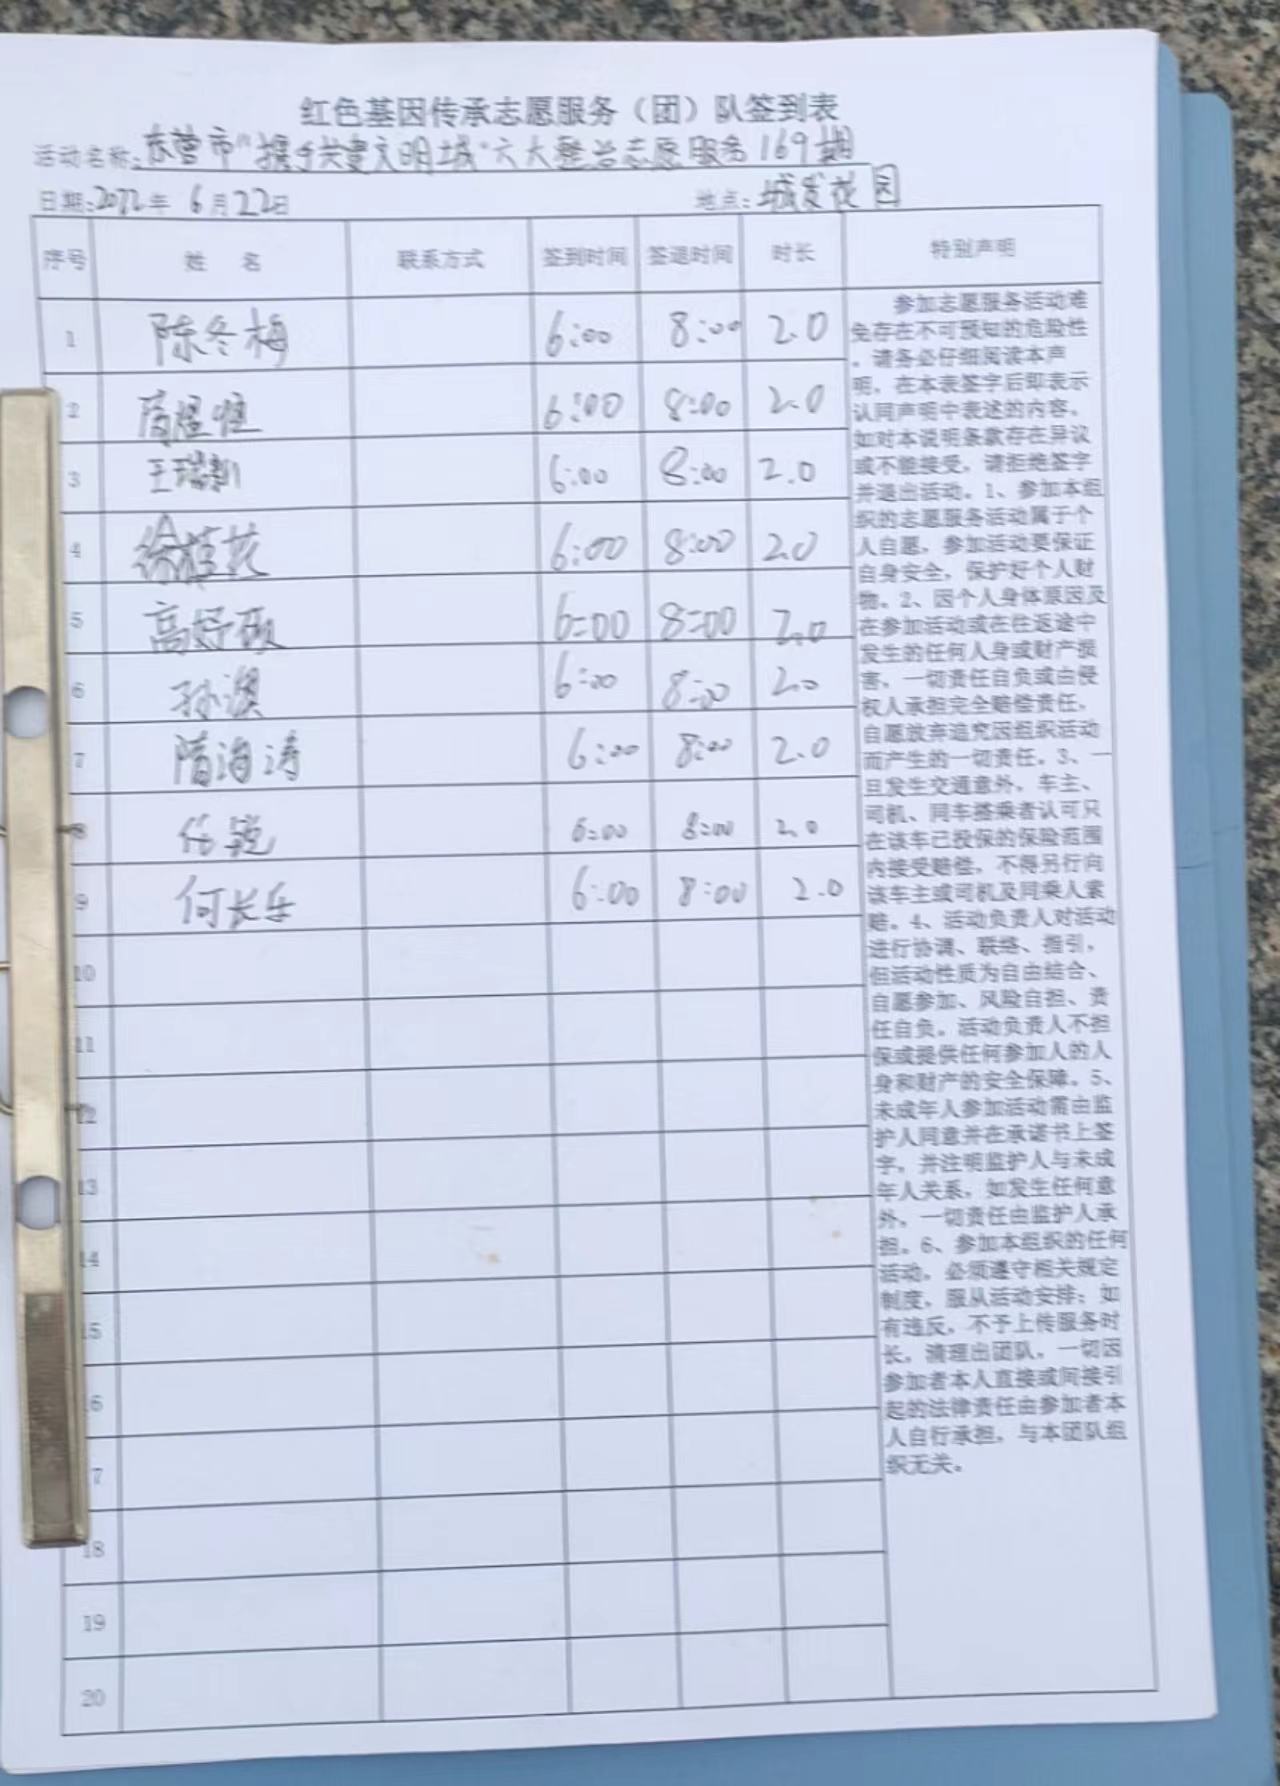 红色基因传承志愿服务（团）队签到表
活动名称：东营市“携手共建文明城”六大整治志愿服务169期
日期：2022年 6月22日 地点：城发花园
序号 姓 名 联系方式 签到时间 签退时间 时长 特别声明
1 陈冬梅 6:00 8:00 2.0
2 6:00 8:00 2.0
3 王瑞 6:00 8:00 2.0
4 徐桂花 6:00 8:00 2.0
5 高好硕 6:00 8:00 2.0
6 孙澳 6:00 8:00 2.0
7 隋海涛 6:00 8:00 2.0
8 任锐 6:00 8:00 2.0
9 何长乐 6:00 8:00 2.0
10
11
12
13
14
15
16
17
18
19
20
参加志愿服务活动难
免存在不可预知的危险性
，请务必仔细阅读本声
明，在本表签字后即表示
认同声明中表述的内容。
如对本说明条款存在异议
或不能接受，请拒绝签字
并退出活动。1、参加本组
织的志愿服务活动属于个
人自愿，参加活动要保证
自身安全，保护好个人财
物。2、因个人身体原因及
在参加活动或在往返途中
发生的任何人身或财产损
害，一切责任自负或由侵
权人承担完全赔偿责任，
自愿放弃追究因组织活动
而产生的一切责任。3、一
旦发生交通意外，车主、
司机、同车搭乘者认可只
在该车已投保的保险范围
内接受赔偿，不得另行向
该车主或司机及同乘人索
赔。4、活动负责人对活动
进行协调、联络、指引，
但活动性质为自由结合、
自愿参加、风险自担、责
任自负。活动负责人不担
保或提供任何参加人的人
身和财产的安全保障。5、
未成年人参加活动需由监
护人同意并在承诺书上签
字，并注明监护人与未成
年人关系，如发生任何意
外，一切责任由监护人承
担。6、参加本组织的任何
活动，必须遵守相关规定
制度，服从活动安排；如
有违反，不予上传服务时
长，清理出团队，一切因
参加者本人直接或间接引
起的法律责任由参加者本
人自行承担，与本团队组
织无关。